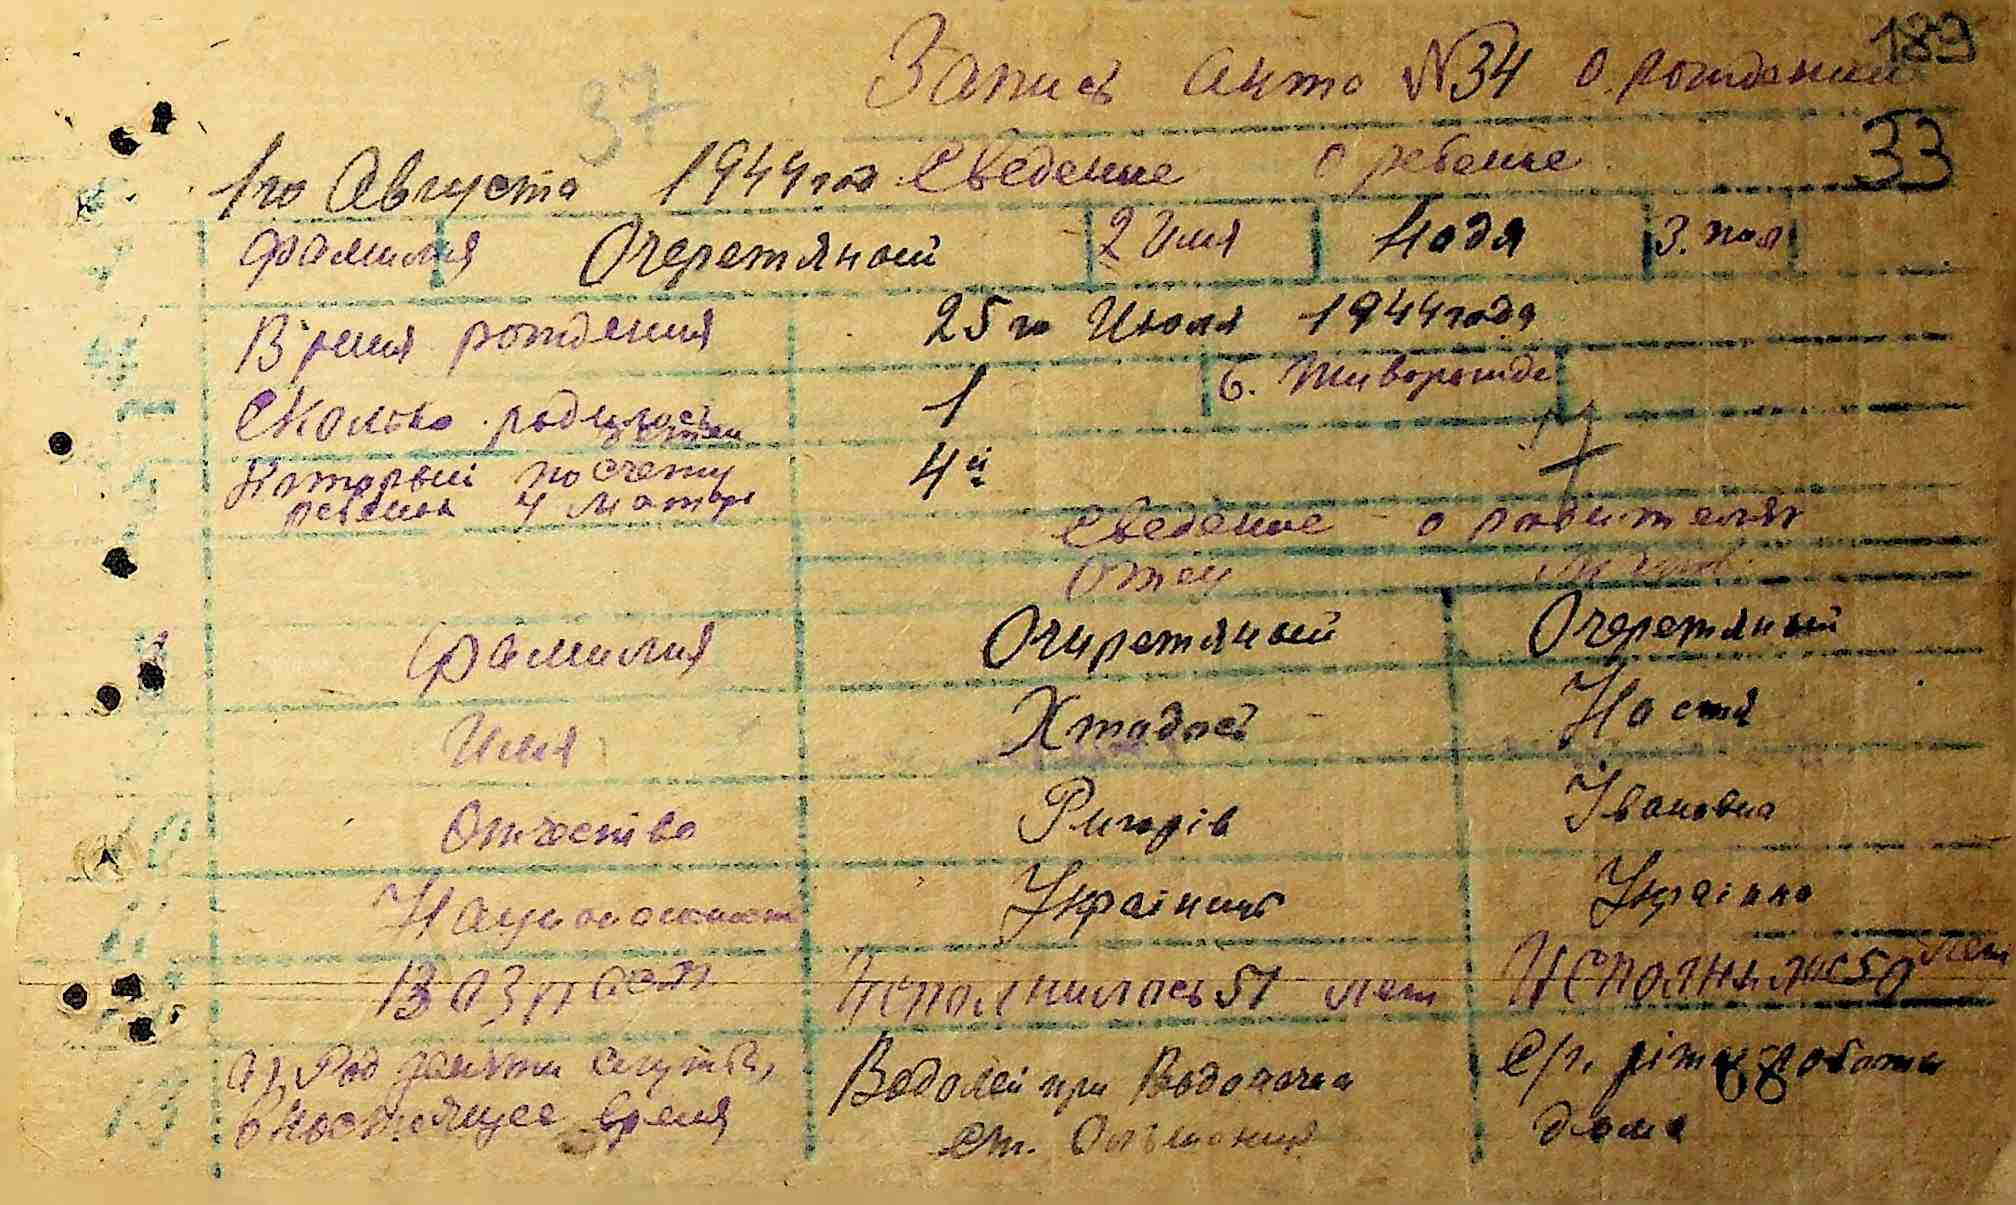 189
Запись акта N34 о рождении
37
33
1го Августа 1944 год Сведение о ребенке
фамилия Очеретяной 2 Имя Надя 3. пол
Время рождения 25 го Июля 1944 года
Сколько родилось детей 1 6. Живорожд
Который по счету ребенок у матери 4й
Сведение о родителях
Отец
Фамилия Очиретяной Очеретяный
Имя Настя
Отчество Ригорів Івановна
Национальност Українць Українка
Возраст Исполнилось 51 лет Исполнилос 50 лет
13 а). Род занятия службы, Водолей при Водокачки С/г. різні роботи
в настоящее время ст. дома